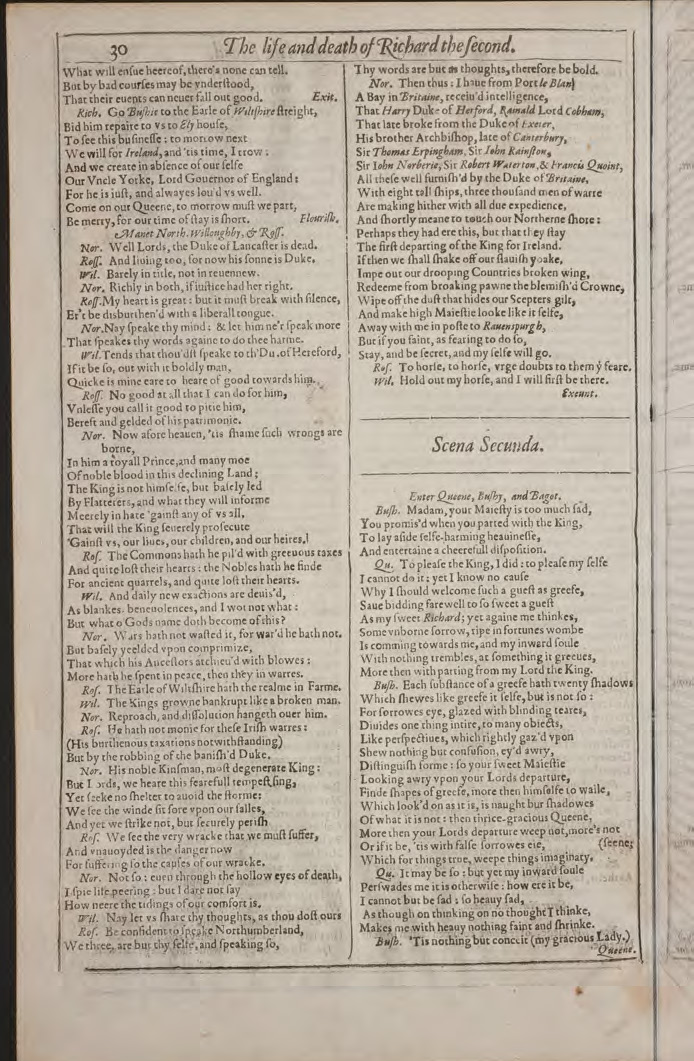 30 The life and death of Richard the second.
What will ensue heereof, there's none can tell.
But by bad courses may be vnderstood,
That their euents can neuer fall out good. Exit.
Rich. Go Bushie to the Earle of Wiltshire streight,
Bid him repaire to vs to Ely house,
To see this businesse: to morrow next
We will for Ireland, and 'tis time, I trow:
And we create in absence of our selfe
Our Vncle Yorke, Lord Gouernor of England:
For he is iust, and alwayes lou'd vs well.
Come on our Queene, to morrow must we part,
Be merry, for our time of stay is short. Flourish.
Manet North. Willoughby, & Ross.
Nor. Well Lords, the Duke of Lancaster is dead.
Ross. And liuing too, for now his sonne is Duke.
Wil. Barely in title, not in reuennew.
Nor. Richly in both, if iustice had her right.
Ross. My heart is great: but it must break with silence,
Er't be disburthen'd with a liberall tongue.
Nor. Nay speake thy mind: & let him ne'r speak more
That speakes thy words againe to do thee harme.
Wil. Tends that thou'dst speake to th'Du. of Hereford,
If it be so, out with it boldly man,
Quicke is mine eare to heare of good towards him.
Ross. No good at all that I can do for him,
Vnlesse you call it good to pitie him,
Bereft and gelded of his patrimonie.
Nor. Now afore heauen, 'tis shame such wrongs are
borne,
In him a royall Prince, and many moe
Of noble blood in this declining Land;
The King is not himselfe, but basely led
By Flatterers, and what they will informe
Meerely in hate 'gainst any of vs all,
That will the King seuerely prosecute
'Gainst vs, our liues, our children, and our heires.
Ros. The Commons hath he pil'd with greeuous taxes
And quite lost their hearts: the Nobles hath he finde
For ancient quarrels, and quite lost their hearts.
Wil. And daily new exactions are deuis'd,
As blankes, beneuolences, and I wot not what:
But what o Gods name doth become of this?
Nor. Wars hath not wasted it, for war'd he hath not.
But basely yeelded vpon comprimize,
That which his Ancestors atchieu'd with blowes:
More hath he spent in peace, then they in warres.
Ros. The Earle of Wiltshire hath the realme in Farme.
Wil. The Kings growne bankrupt like a broken man.
Nor. Reproach, and dissolution hangeth ouer him.
Ros. He hath not monie for these Irish warres:
(His burthenous taxations notwithstanding)
But by the robbing of the banish'd Duke.
Nor. His noble Kinsman, most degenerate King:
But Lords, we heare this fearefull tempest sing,
Yet seeke no shelter to auoid the storme:
We see the winde sit sore vpon our salles,
And yet we strike not, but securely perish
Ros. We see the very wracke that we must suffer,
And vnauoyded is the danger now
For suffering so the causes of our wracke.
Nor. Not so: euen through the hollow eyes of death,
I spie life peering: but I dare not say
How neere the tidings of our comfort is.
Wil. Nay let vs share thy thoughts, as thou dost ours
Ros. Be confident to speake Northumberland,
We three, are but thy selfe, and speaking so,
Thy words are but as thoughts, therefore be bold.
Nor. Then thus: I haue from Port le Blan
A Bay in Britaine, receiu'd intelligence,
That Harry Duke of Herford, Rainald Lord Cobham,
That late broke from the Duke of Exeter,
His brother Archbishop, late of Canterbury,
Sir Thomas Erpingham, Sir Iohn Rainston,
Sir Iohn Norberie, Sir Robert Waterton, & Francis Quoint,
All these well furnish'd by the Duke of Britaine,
With eight tall ships, three thousand men of warre
Are making hither with all due expedience,
And shortly meane to touch our Northerne shore:
Perhaps they had ere this, but that they stay
The first departing of the King for Ireland.
If then we shall shake off our slauish yoake,
Impe out our drooping Countries broken wing,
Redeeme from broaking pawne the blemish'd Crowne,
Wipe off the dust that hides our Scepters gilt,
And make high Maiestie looke like it selfe,
Away with me in poste to Rauenspurgh,
But if you faint, as fearing to do so,
Stay, and be secret, and my selfe will go.
Ros. To horse, to horse, vrge doubts to them yͭ feare.
Wil. Hold out my horse, and I will first be there.
Exeunt.
Scena Secunda.
Enter Queene, Bushy, and Bagot.
Bush. Madam, your Maiesty is too much sad,
You promis'd when you parted with the King,
To lay aside selfe-harming heauinesse,
And entertaine a cheerefull disposition.
Qu. To please the King, I did: to please my selfe
I cannot do it: yet I know no cause
Why I should welcome such a guest as greefe,
Saue bidding farewell to so sweet a guest
As my sweet Richard; yet againe me thinkes,
Some vnborne sorrow, ripe in fortunes wombe
Is comming towards me, and my inward soule
With nothing trembles, at something it greeues,
More then with parting from my Lord the King.
Bush. Each substance of a greefe hath twenty shadows
Which shewes like greefe it selfe, but is not so:
For sorrowes eye, glazed with blinding teares,
Diuides one thing intire, to many obiects,
Like perspectiues, which rightly gaz'd vpon
Shew nothing but confusion, ey'd awry,
Distinguish forme: so your sweet Maiestie
Looking awry vpon your Lords departure,
Finde shapes of greefe, more then himselfe to waile,
Which look'd on as it is, is naught but shadowes
Of what it is not: then thrice-gracious Queene,
More then your Lords departure weep not, more's not
Or if it be, 'tis with false sorrowes eie, (seene;
Which for things true, weepe things imaginary.
Qu. It may be so: but yet my inward soule
Perswades me it is otherwise: how ere it be,
I cannot but be sad: so heauy sad,
As though on thinking on no thought I thinke,
Makes me with heauy nothing faint and shrinke.
Bush. 'Tis nothing but conceit (my gracious Lady.)
Queene.